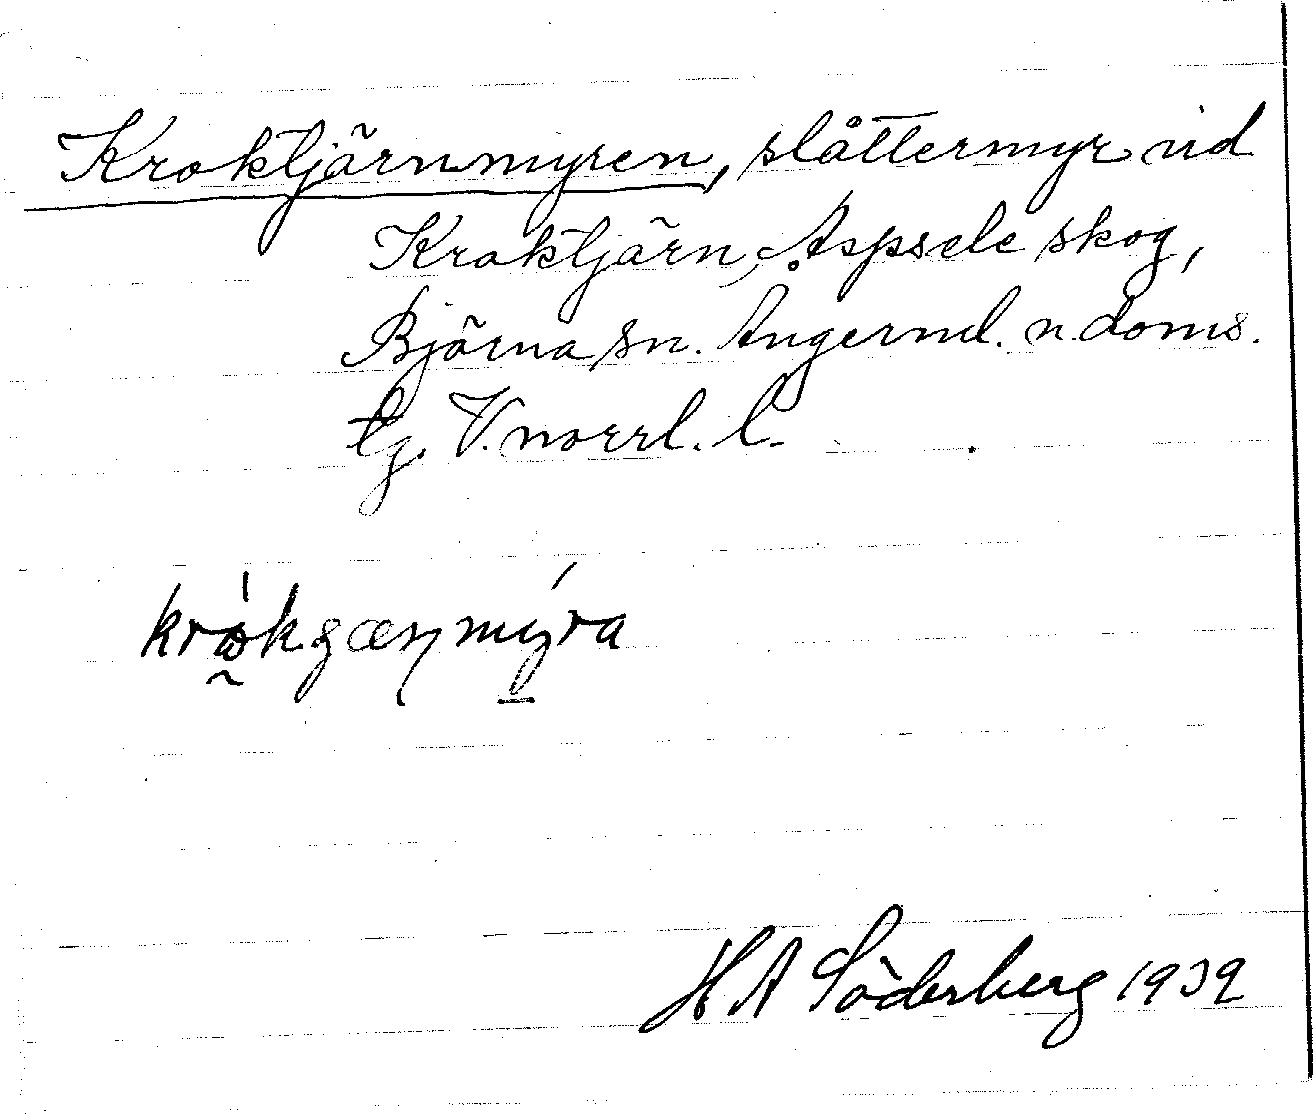 Kroktjärnmyren, slåttermyr vid
Kroktjärn, Aspsele skog,
Björna sn. Ångerml. n. doms.
tg. V. norrl. l.
H A Söderberg 1939